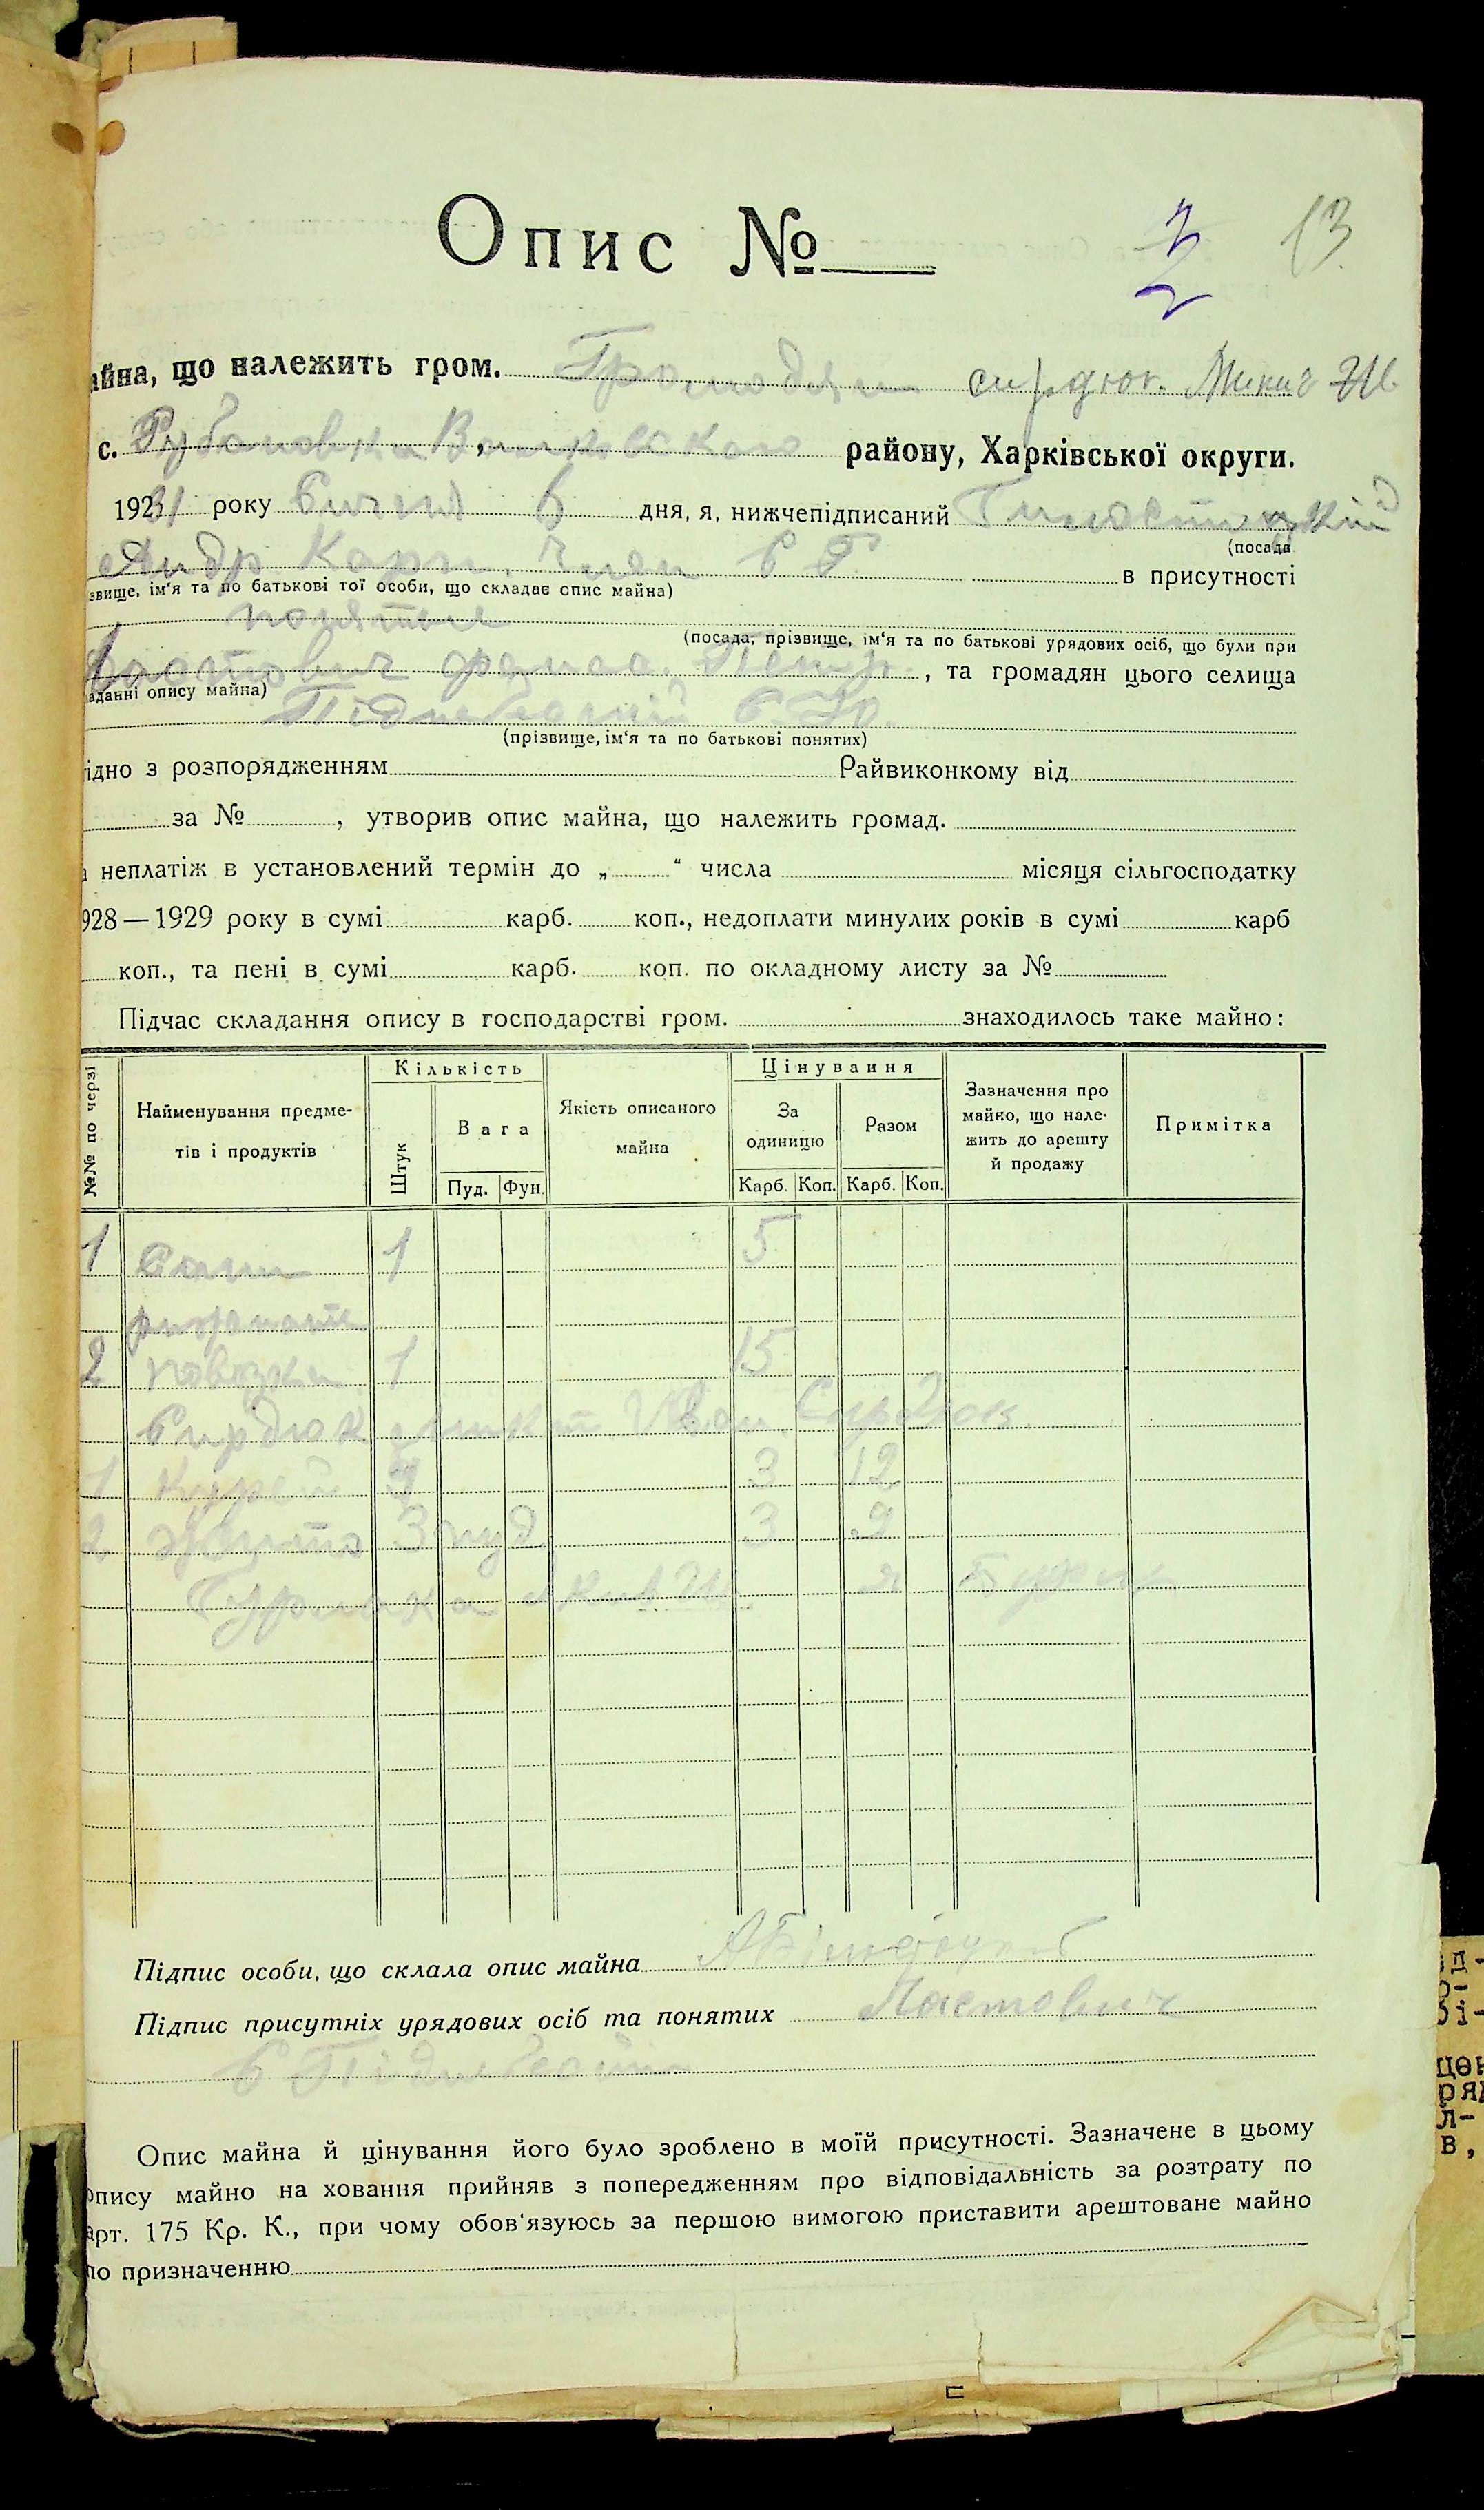 Опис №
2
13
айна, що належить гром. Громадян сирдюк. Микит Ив.
с. Рубановка, Валковского району, Харківської округи.
1931 року Січня 6 дня, я, нижчепідписаний
(посада
Андр Карп. Член С Р в присутності
звище, ім'я та по батькові тої особи, що складає опис майна)
понятые
(посада, прізвище, ім'я та по батькові урядових осіб, що були при
Ластович Петр , та громадян цього селища
аданні опису майна)
(прізвище, ім'я та по батькові понятих)
ідно з розпорядженням Райвиконкому від
за № , утворив опис майна, що належить громад.
неплатіж в установлений термін до „ “ числа місяця сільгосподатку
928—1929 року в сумі карб. коп., недоплати минулих років в сумі карб
коп., та пені в сумі карб. коп. по окладному листу за №
Підчас складання опису в господарстві гром. знаходилось таке майно:
№№ по черзі
Найменування предме-
тів і продуктів
Кількість
Штук
Вага
Пуд. Фун.
Якість описаного
майна
Цінування
За
одиницю
Разом
Карб. Коп. Карб. Коп.
Зазначення про
майно, що нале-
жить до арешту
й продажу
Примітка
1 Сани 1 5
2 повозка 1 15
Сирдюк Микит Иван Сурдюк
1 Курей 3 12
2 жита 3 пуд 3 9
Бурлака Якив
Підпис особи, що склала опис майна
Підпис присутніх урядових осіб та понятих Ластович
Опис майна й цінування його було зроблено в моїй присутності. Зазначене в цьому
опису майно на ховання прийняв з попередженням про відповідальність за розтрату по
арт. 175 Кр. К., при чому обов'язуюсь за першою вимогою приставити арештоване майно
по призначенню